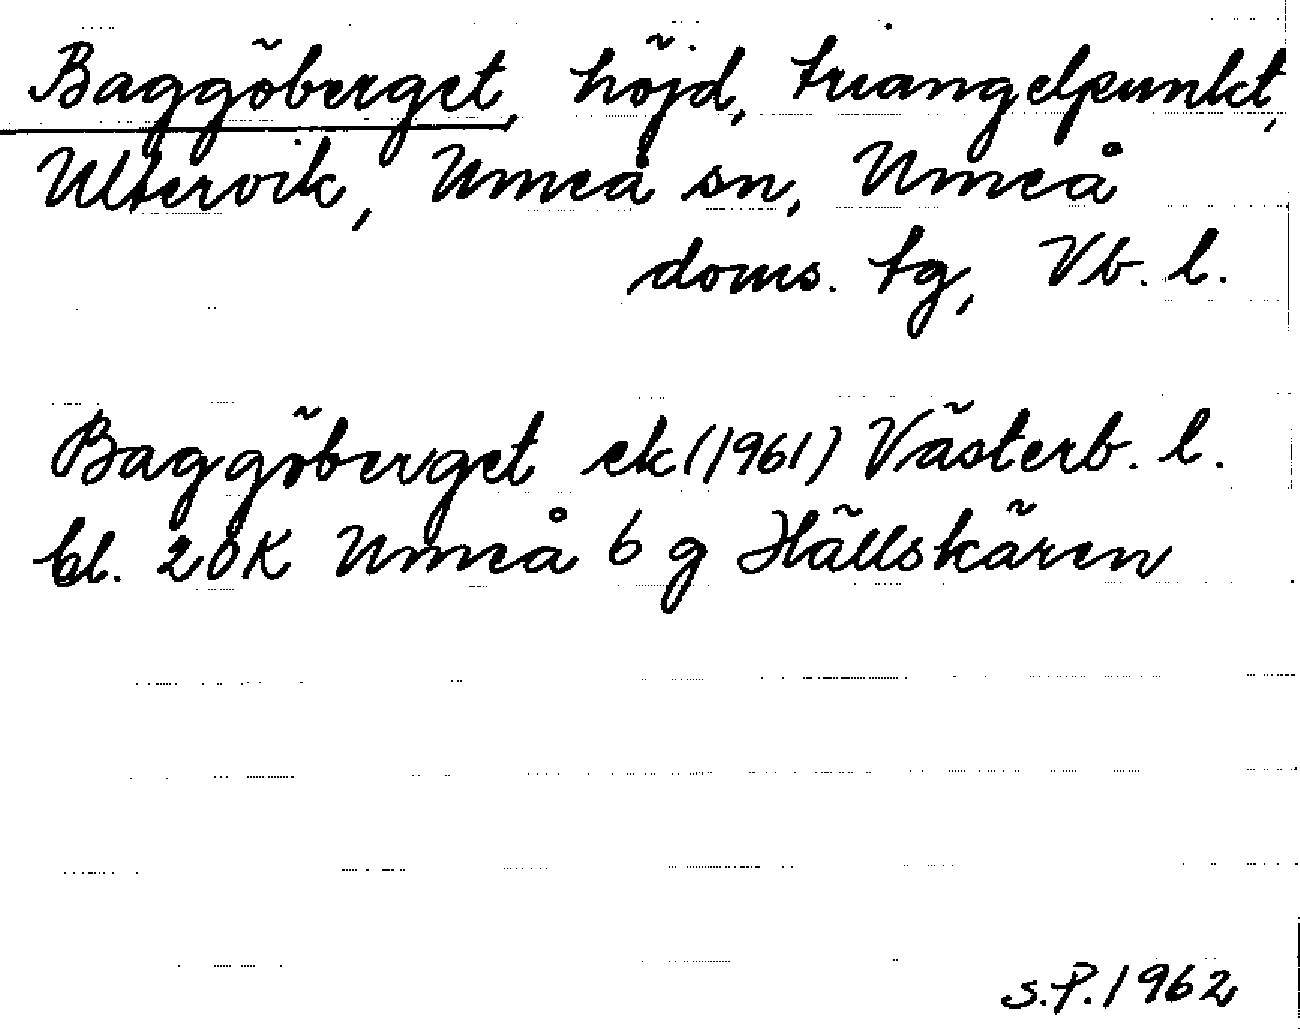 Baggöberget, höjd, triangelpunkt,
Ultervik, Umeå sn, Umeå
doms. tg, Vb. l.
Baggöberget ek (1961) Västerb. l.
bl. 20K Umeå 6 g Hällskären
S.P. 1962